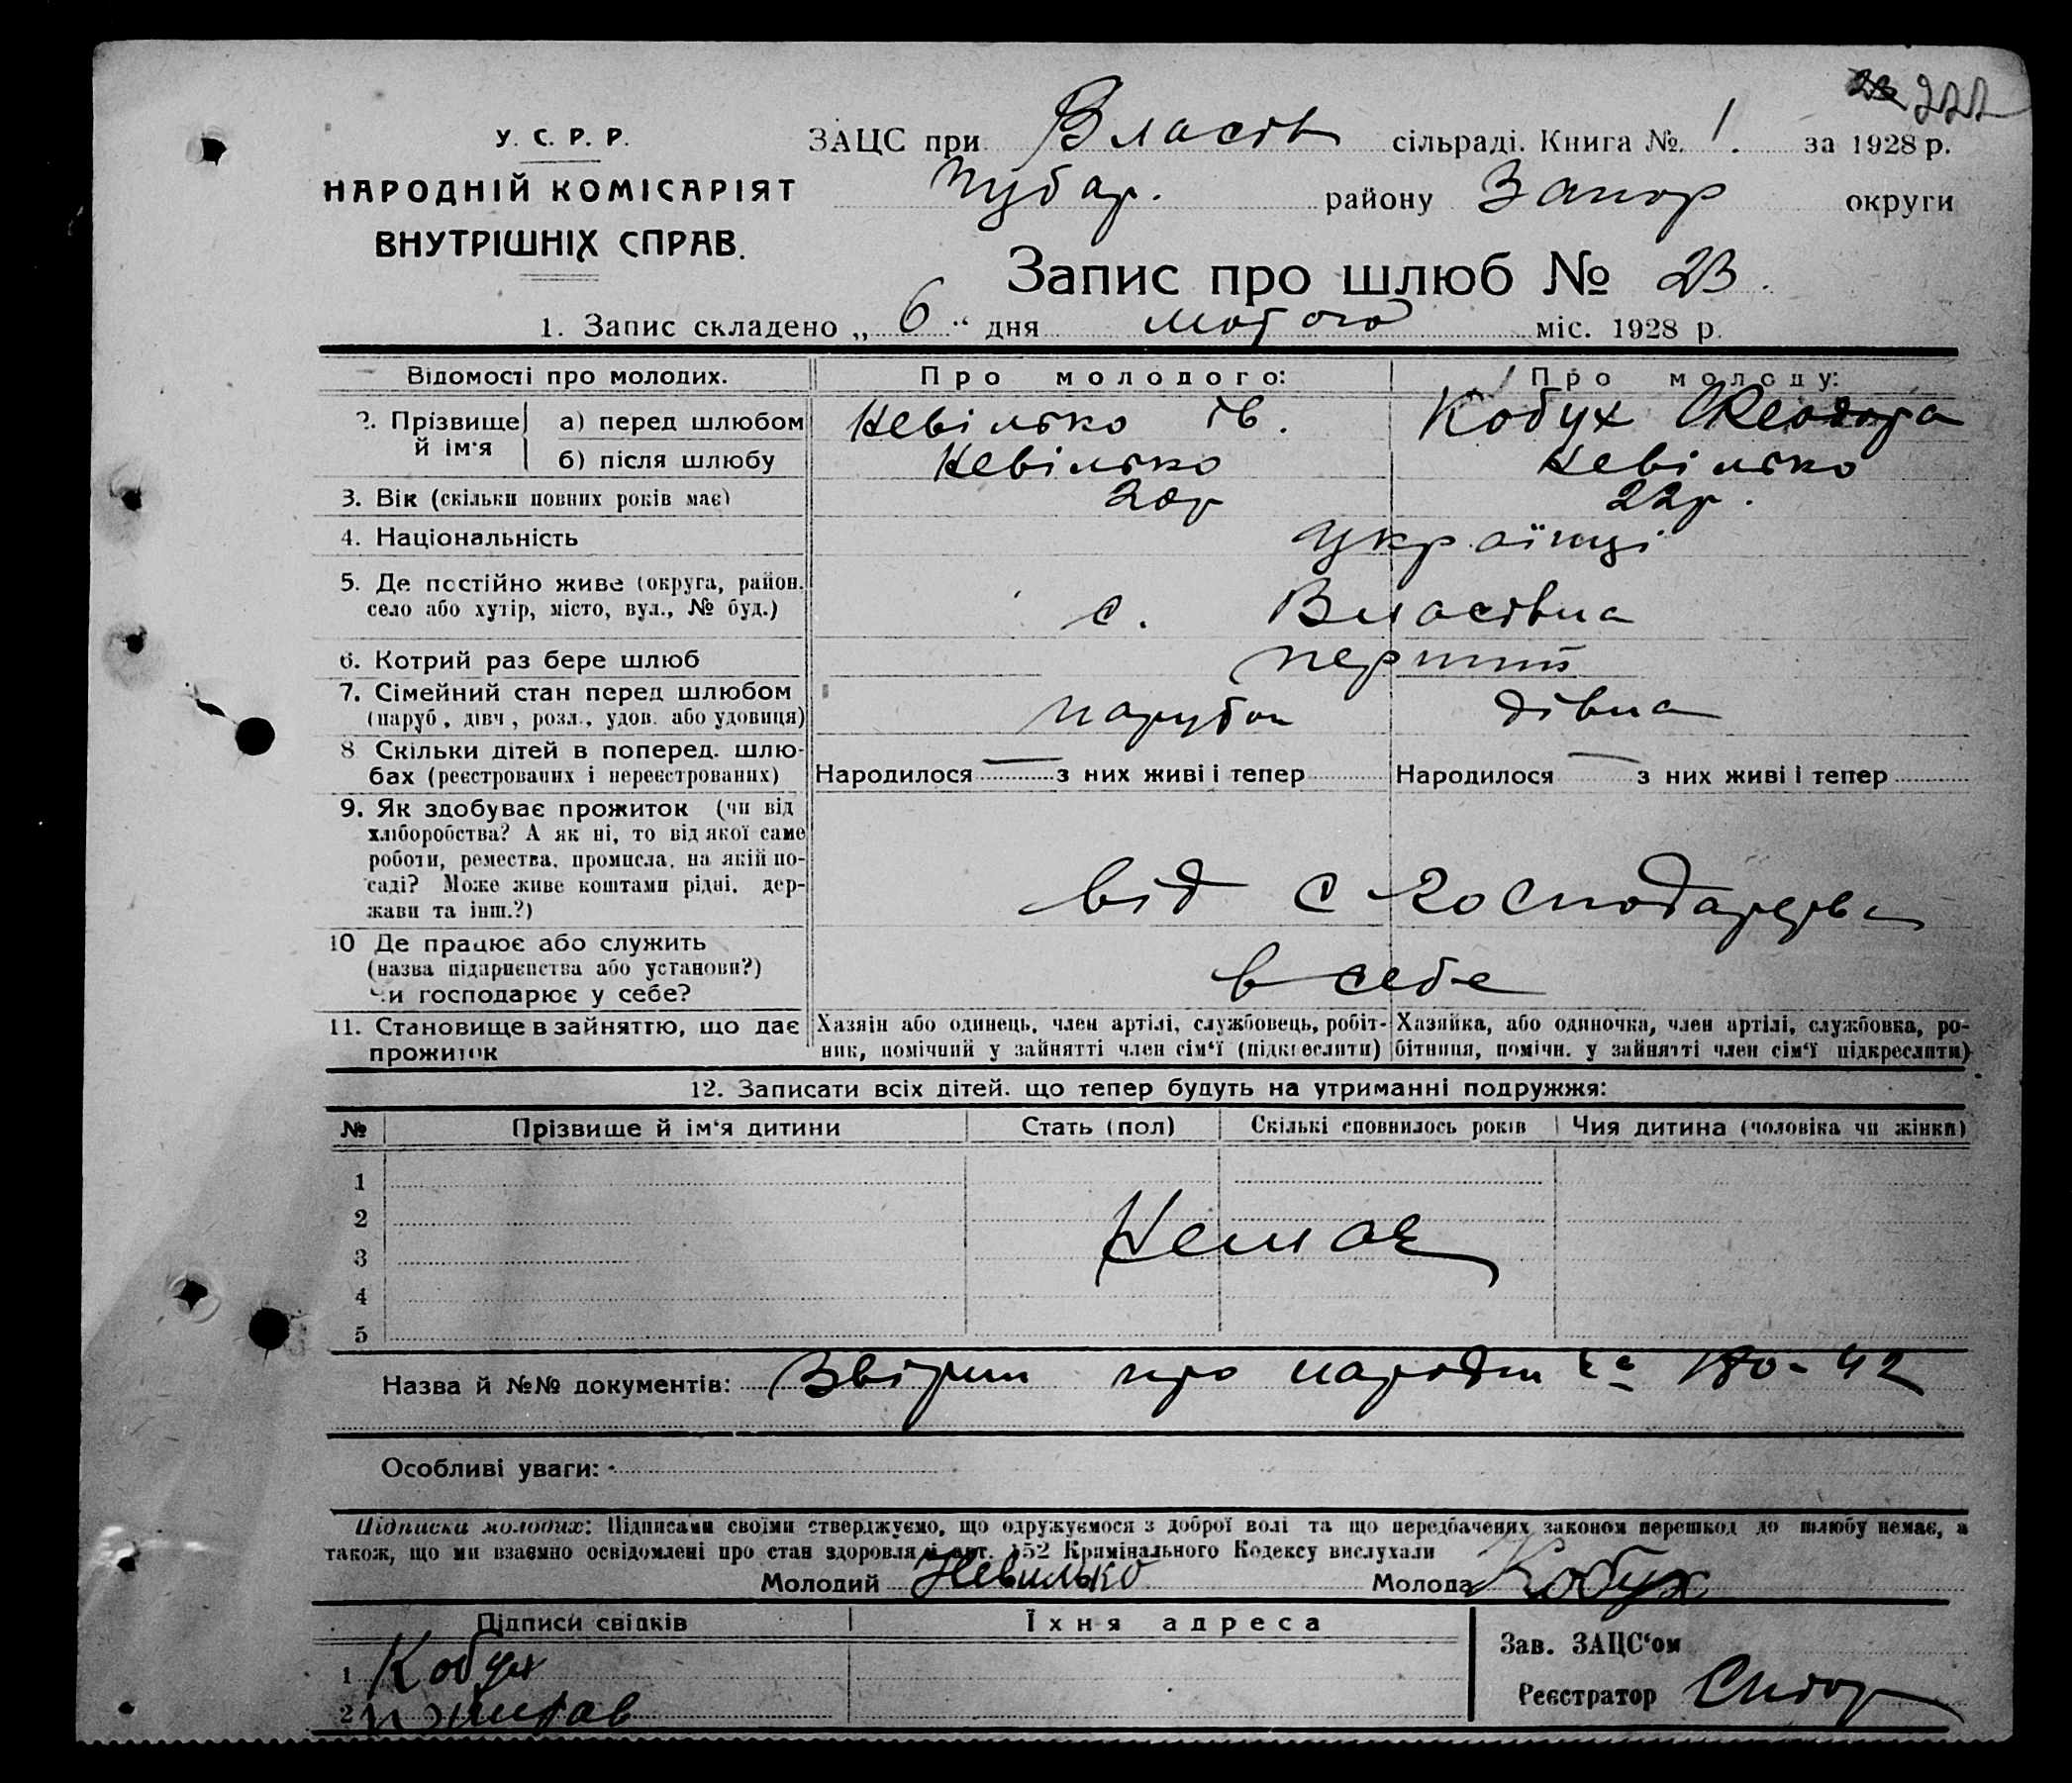 222
У. С. Р. Р.
НАРОДНІЙ КОМІСАРІЯТ
ВНУТРІШНІХ СПРАВ.
ЗАЦС при Власів сільраді. Книга №. 1. за 1928 р.
Чубар. району Запор округи
Запис про шлюб № 23.
1. Запис складено „ 6 “ дня лютого міс. 1928 р.
Відомості про молодих. Про молодого: Про молоду:
2. Прізвище й ім'я
а) перед шлюбом Невілько Ів. Кобух
б) після шлюбу Невілько Невілько
3. Вік (скільки повних років має) 20р 22р.
4. Національність українці
5. Де постійно живе (округа, район,
село або хутір, місто, вул., № буд.) с. Власівка
6. Котрий раз бере шлюб перший
7. Сімейний стан перед шлюбом
(паруб., дівч., розл., удов. або удовиця) парубок дівка
8 Скільки дітей в поперед. шлю-
бах (реєстрованих і нереєстрованих) Народилося — з них живі і тепер Народилося — з них живі і тепер
9. Як здобуває прожиток (чи від
хліборобства? А як ні, то від якої саме
роботи, ремества, промисла, на якій по-
саді? Може живе коштами рідні, дер-
жави та інш.?) від с господарства
10 Де працює або служить
(назва підприємства або установи?)
Чи господарює у себе? в себе
11. Становище в зайняттю, що дає
прожиток
Хазяїн або одинець, член артілі, службовець, робіт-
ник, помічний у зайнятті член сім'ї (підкреслити)
Хазяйка, або одиночка, член артілі, службовка, ро-
бітниця, помічн. у зайнятті член сім'ї підкреслити)
12. Записати всіх дітей, що тепер будуть на утриманні подружжя:
№ Прізвище й ім'я дитини Стать (пол) Скількі сповнилось років Чия дитина (чоловіка чи жінки)
1
2
3
4
5
Немає
Назва й №№ документів: про 42
Особливі уваги:
Підписки молодих: Підписами своїми стверджуємо, що одружуємося з доброї волі та що передбачених законом перешкод до шлюбу немає, а
також, що ми взаємно освідомлені про стан здоровля і арт. 152 Кримінального Кодексу вислухали
Молодий Невилько Молода Кобух
Підписи свідків Їхня адреса
1 Кобух
2
Зав. ЗАЦС'ом
Реєстратор